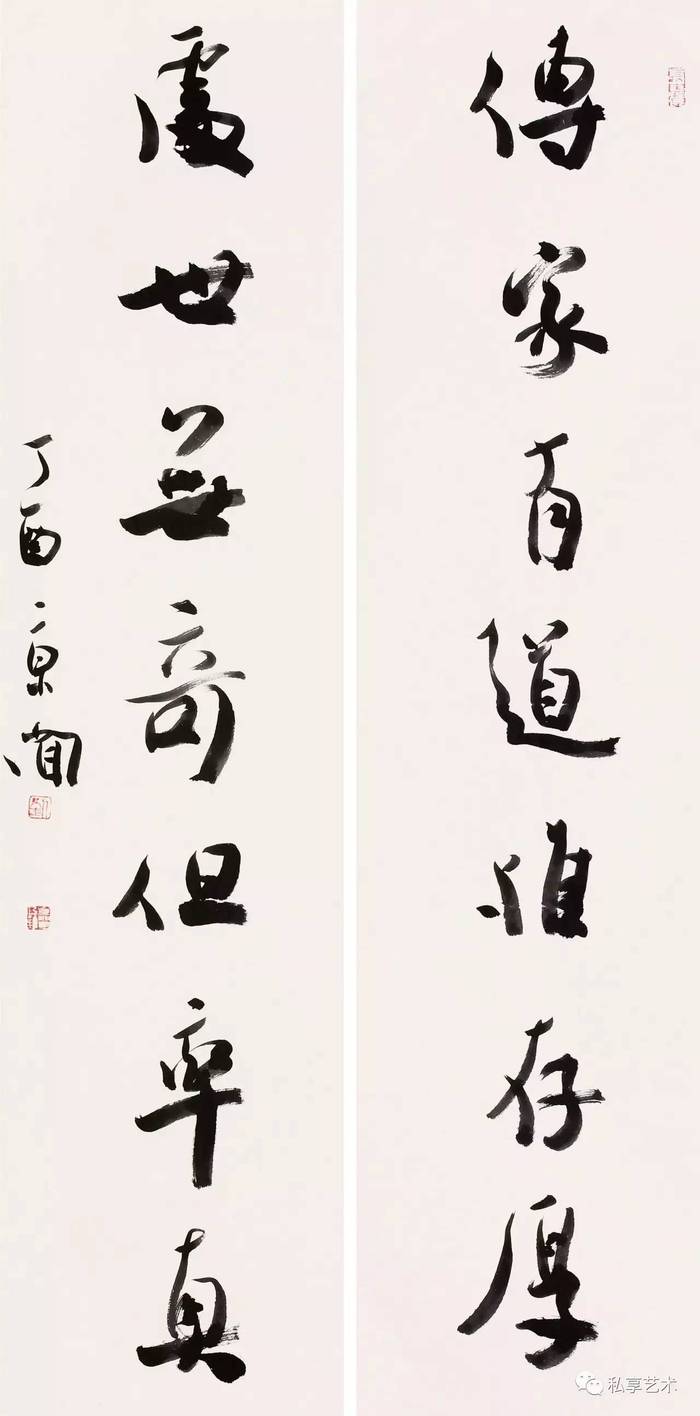 傳家有道惟存厚
處世無奇但率真
丁酉京聞
私享艺术